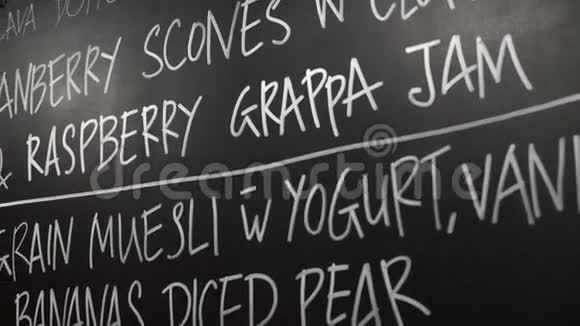 AVA DO
ANBERRY SCONES W CLO
& RASPBERRY GRAPPA JAM
GRAIN MUESLI W YOGURT, VANI
BANANAS DICED PEAR
dreamstime